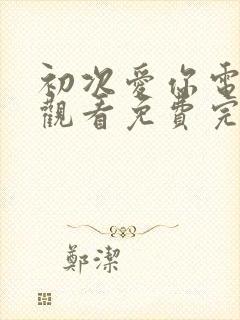 初次愛你電
觀看免費完
鄭潔